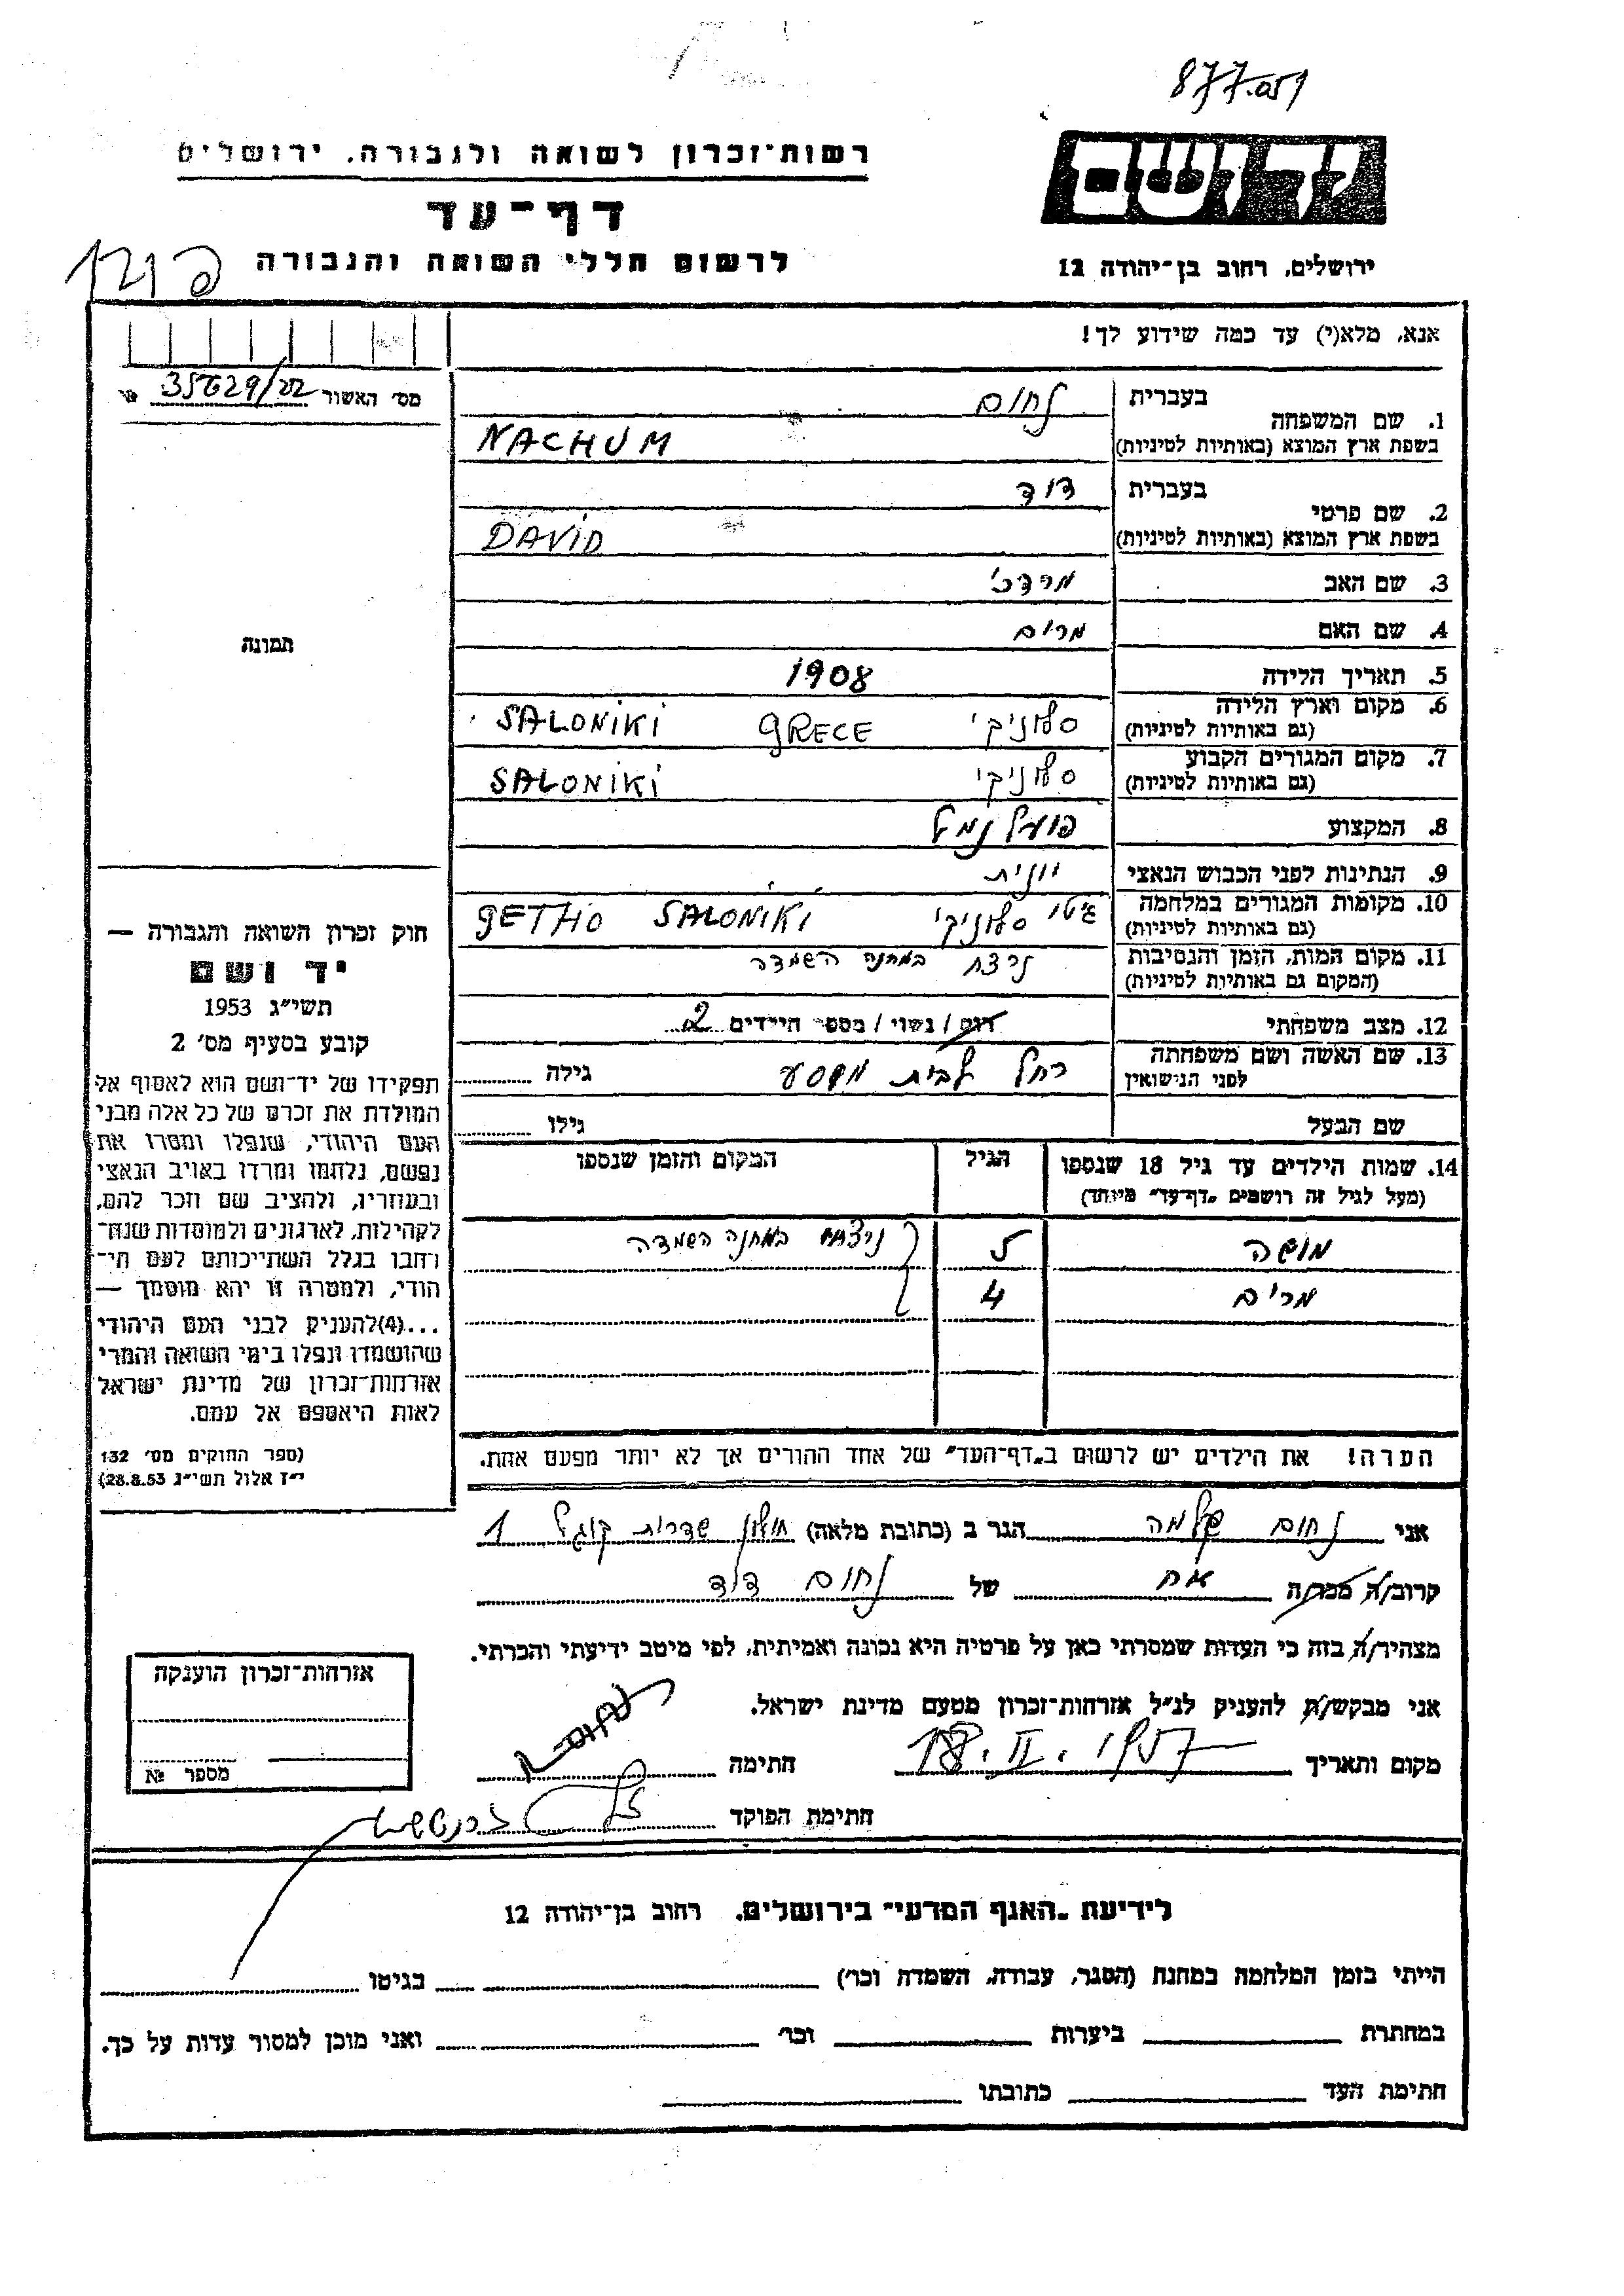 877.051
רשות־זכרון לשואה ולגבורה, ירושלים
דף־עד
לרשום חללי השואה והגבורה
יד ושם
ירושלים, רחוב בן־יהודה 12
אנא, מלא(י) עד כמה שידוע לך!
מס' האשור №
1. שם המשפחה
בעברית נחום
בשפת ארץ המוצא (באותיות לטיניות) NACHUM
2. שם פרטי
בעברית דוד
בשפת ארץ המוצא (באותיות לטיניות) DAVID
3. שם האב מרדכי
4. שם האם מרים
5. תאריך הלידה 1908
6. מקום וארץ הלידה
(גם באותיות לטיניות) סלוניקי GRECE SALONIKI
7. מקום המגורים הקבוע
(גם באותיות לטיניות) סלוניקי SALONIKI
8. המקצוע פועל נמל
9. הנתינות לפני הכבוש הנאצי יונית
10. מקומות המגורים במלחמה
(גם באותיות לטיניות) גיטו סלוניקי GETHO SALONIKI
11. מקום המות, הזמן והנסיבות
(המקום גם באותיות לטיניות) נרצח במחנה השמדה
12. מצב משפחתי רווק / נשוי / מספר הילדים 2
13. שם האשה ושם משפחתה
לפני הנישואין רחל לבית גילה
שם הבעל גילו
14. שמות הילדים עד גיל 18 שנספו
(מעל לגיל זה רושמים „דף־עד" מיוחד)
הגיל
המקום והזמן שנספו
משה 5 נרצחו במחנה השמדה
מרים 4
הערה! את הילדים יש לרשום ב„דף־העד" של אחד ההורים אך לא יותר מפעם אחת.
תמונה
חוק זכרון השואה והגבורה —
יד ושם
תשי"ג 1953
קובע בסעיף מס' 2
תפקידו של יד־ושם הוא לאסוף אל
המולדת את זכרם של כל אלה מבני
העם היהודי, שנפלו ומסרו את
נפשם, נלחמו ומרדו באויב הנאצי
ובעוזריו, ולהציב שם וזכר להם,
לקהילות, לארגונים ולמוסדות שנח־
רבו בגלל השתייכותם לעם הי־
הודי, ולמטרה זו יהא מוסמך —
...(4)להעניק לבני העם היהודי
שהושמדו ונפלו בימי השואה והמרי
אזרחות־זכרון של מדינת ישראל
לאות היאספם אל עמם.
(ספר החוקים מס' 132
י"ז אלול תשי"ג 28.8.53)
אני נחום שלמה הגר ב (כתובת מלאה) חולון שדרות קוגל 1
קרוב/ה מכר/ה אח של נחום דוד
מצהיר/ה בזה כי העדות שמסרתי כאן על פרטיה היא נכונה ואמיתית, לפי מיטב ידיעתי והכרתי.
אני מבקש/ת להעניק לנ"ל אזרחות־זכרון מטעם מדינת ישראל.
מקום ותאריך 18.II.1957 חתימה
חתימת הפוקד
אזרחות־זכרון הוענקה
מספר №
לידיעת „האגף המדעי" בירושלים, רחוב בן־יהודה 12
הייתי בזמן המלחמה במחנה (הסגר, עבודה, השמדה וכר') בגיטו
במחתרת ביערות וכר' ואני מוכן למסור עדות על כך.
חתימת העד כתובתו